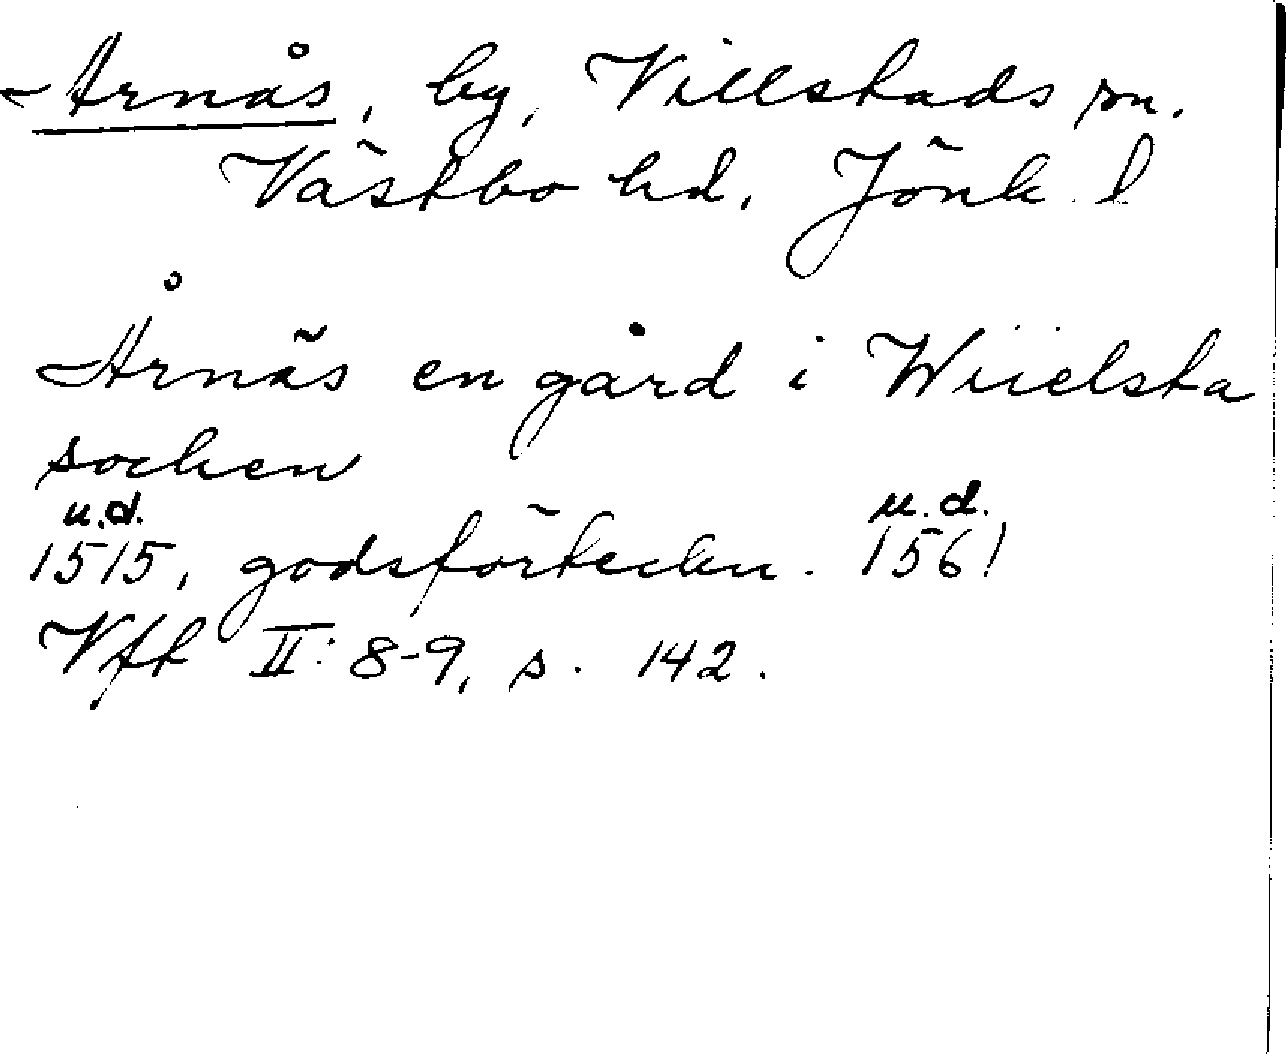 Arnås, by, Villstads sn.
Västbo hd. Jönk. l
Årnäs en gård i Wiielsta
socken
u.d. u.d.
1515, godsförteckn. 1561
Vft II: 8-9, s. 142.